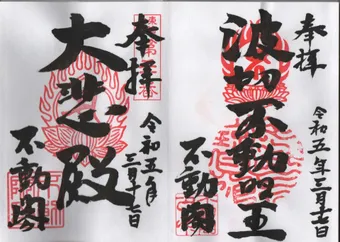 奉拝
波切不動明王
令和五年三月十七日
不動閣
奉拝
大悲殿
令和五年
三月十七日
不動閣